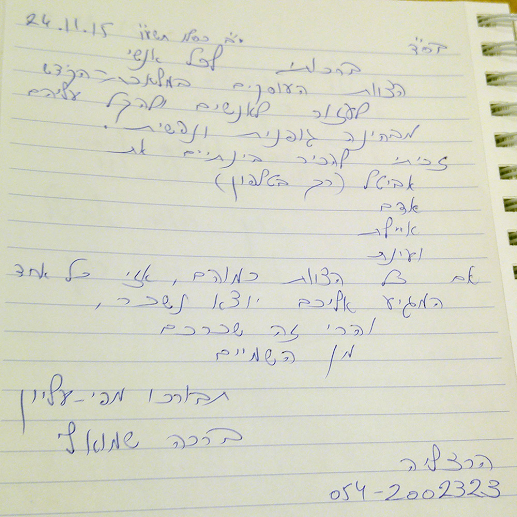 בס"ד י"ב כסלו תשע"ו 24.11.15
ברכותי לכל אנשי
הצוות העוסקים במלאכת-הקודש
לעזור לאנשים ולהקל עליהם
מבחינה גופנית ונפשית.
זכיתי להכיר בינתיים את
אביטל (רק בטלפון)
אדם
איילת
ועינת
אם כל הצוות כמוהם, אזי כל אחד
המגיע אליכם יוצא נשכר,
והרי זה שכרכם
מן השמיים
תבורכו מפי-עליון
ברכה שמואלי
הרצליה
054-2002323